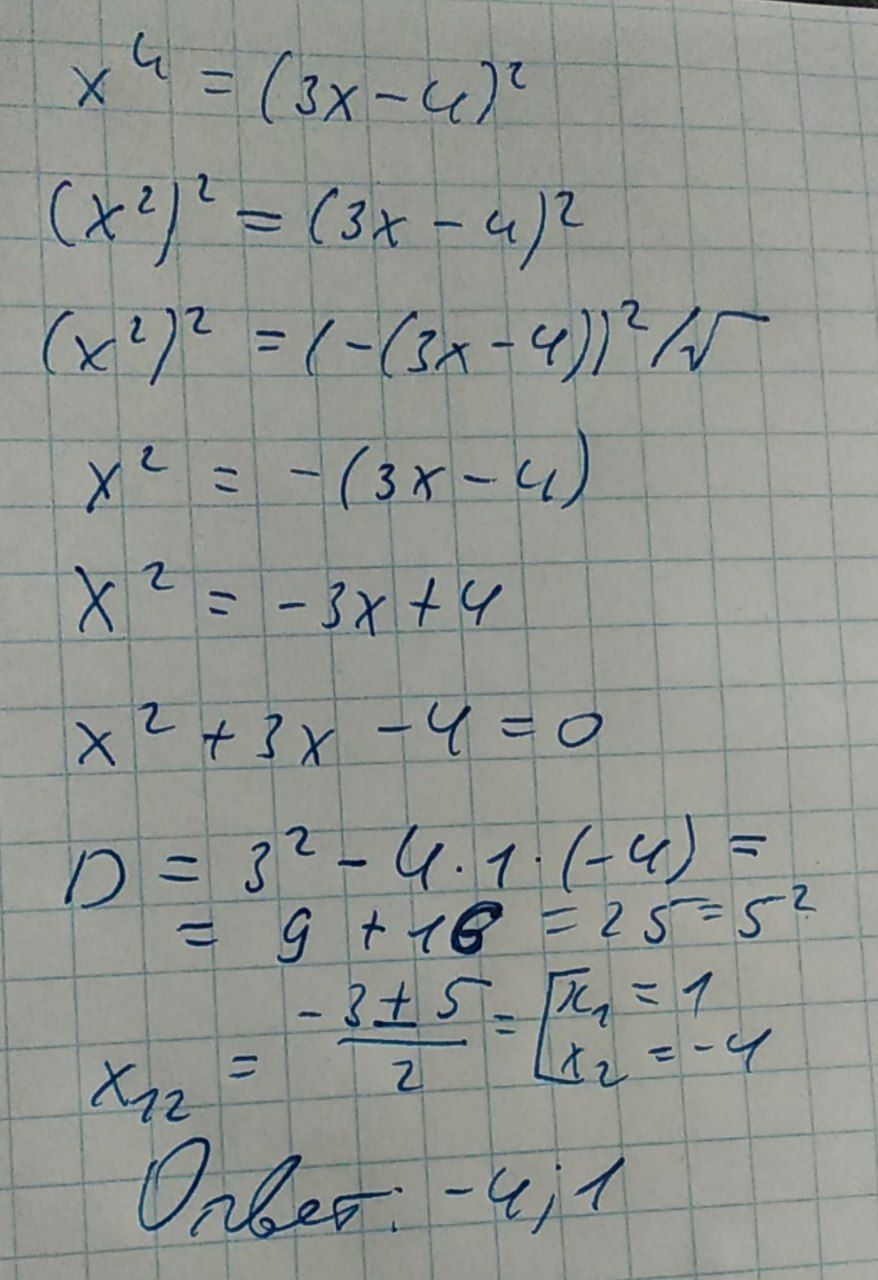 x⁴ = (3x - 4)²
(x²)² = (3x - 4)²
(x²)² = (-(3x - 4))² /√
x² = -(3x - 4)
x² = -3x + 4
x² + 3x - 4 = 0
D = 3² - 4 · 1 · (-4) =
= 9 + 16 = 25 = 5²
x₁₂ = (-3 ± 5)/2 = [x₁ = 1
x₂ = -4
Ответ: -4; 1